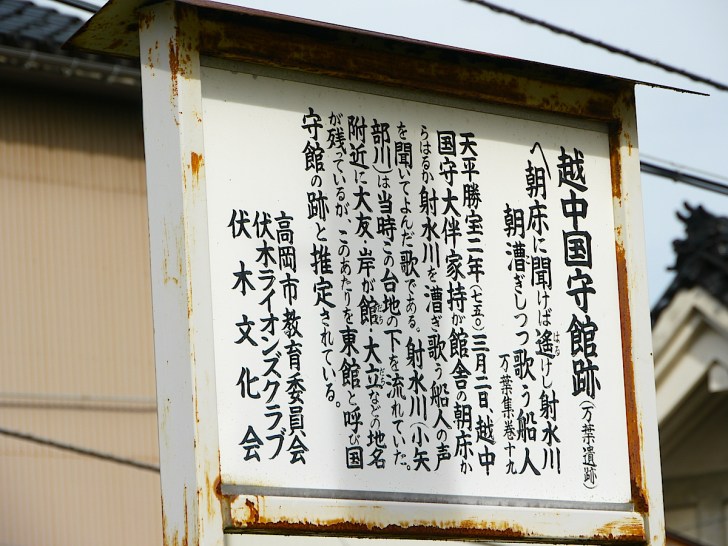 越中国守館跡(万葉遺跡)
〽朝床に聞けば遙けし射水川
朝漕ぎしつつ歌う船人
万葉集巻十九
天平勝宝二年(七五〇)三月二日、越中
国守大伴家持が館舎の朝床か
らはるか射水川を漕ぎ歌う船人の声
を聞いてよんだ歌である。射水川(小矢
部川)は当時この台地の下を流れていた。
附近に大友・岸が館・大立などの地名
が残っているが、このあたりを東館と呼び国
守館の跡と推定されている。
高岡市教育委員会
伏木ライオンズクラブ
伏木文化会